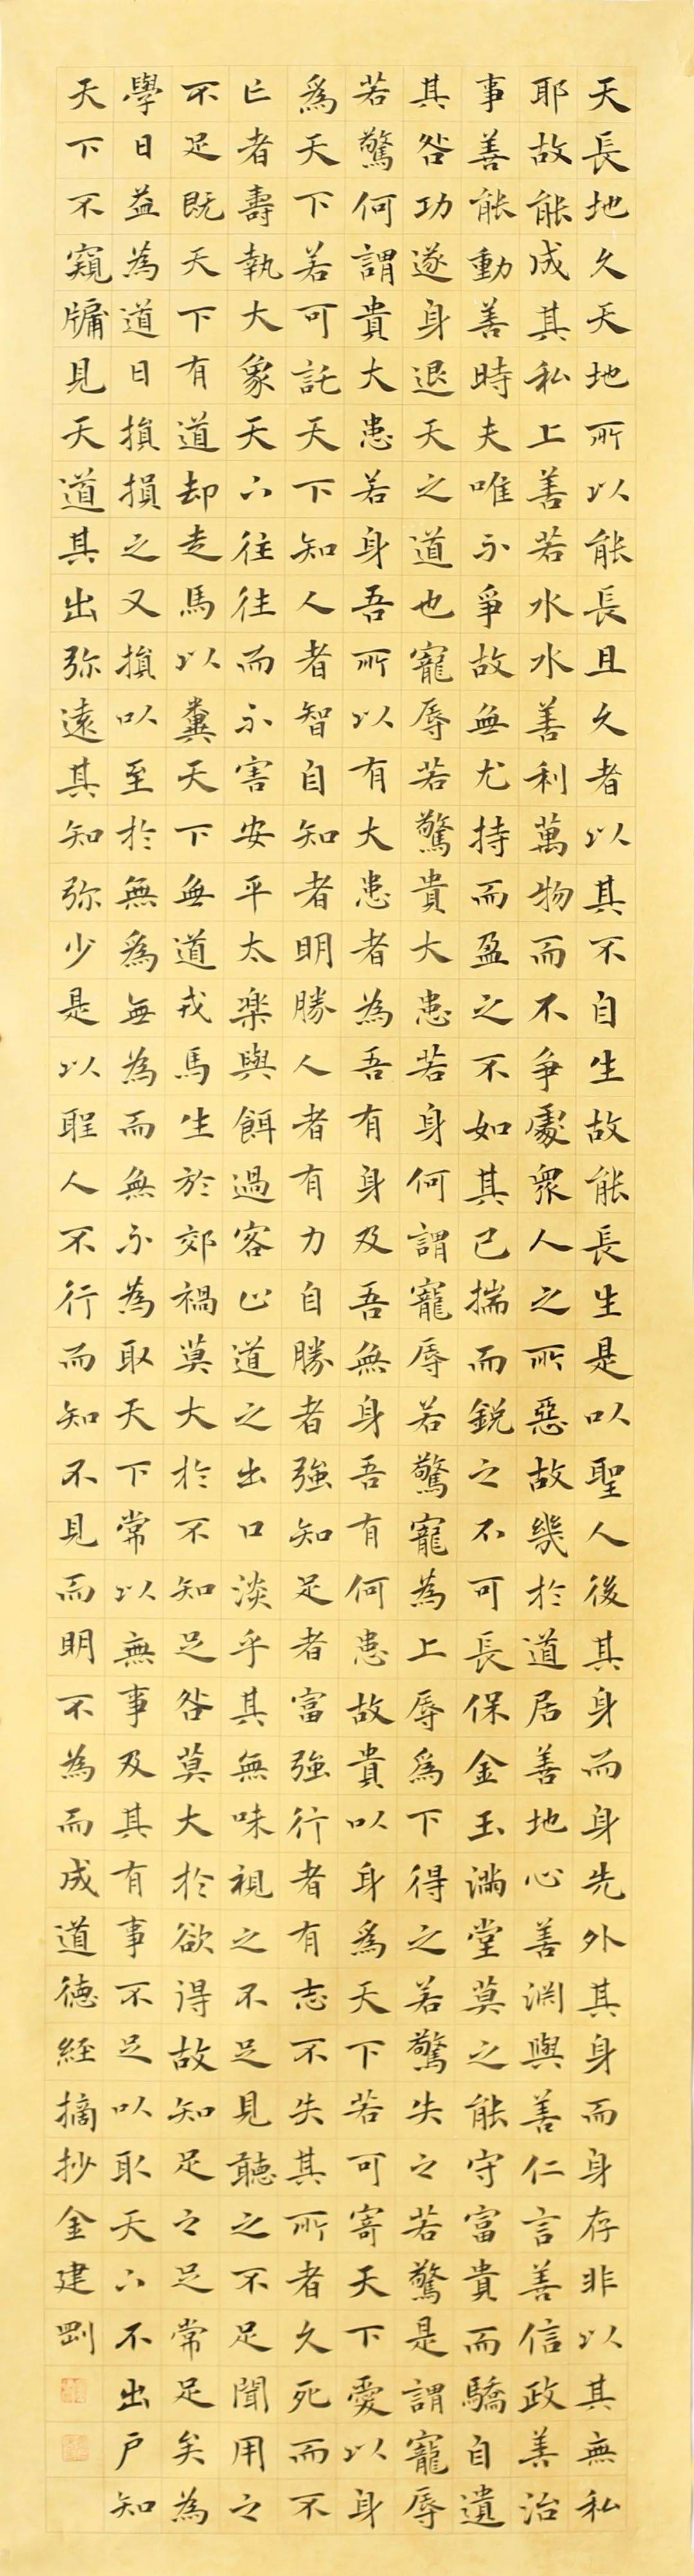 天長地久天地所以能長且久者以其不自生故能長生是以聖人後其身而身先外其身而身存非以其無私
耶故能成其私上善若水水善利萬物而不爭處衆人之所惡故幾於道居善地心善渊與善仁言善信政善治
事善能動善時夫唯不爭故無尤持而盈之不如其已揣而銳之不可長保金玉满堂莫之能守富貴而驕自遺
其咎功遂身退天之道也寵辱若驚貴大患若身何謂寵辱若驚寵為上辱爲下得之若驚失之若驚是謂寵辱
若驚何謂貴大患若身吾所以有大患者為吾有身及吾無身吾有何患故貴以身爲天下若可寄天下愛以身
爲天下若可託天下知人者智自知者明勝人者有力自勝者強知足者富強行者有志不失其所者久死而不
亡者壽執大象天下往往而不害安平太樂與餌過客止道之出口淡乎其無味視之不足見聽之不足聞用之
不足既天下有道却走馬以糞天下無道戎馬生於郊禍莫大於不知足咎莫大於欲得故知足之足常足矣為
學日益為道日損損之又損以至於無爲無為而無不為取天下常以無事及其有事不足以取天下不出戶知
天下不窺牖見天道其出弥遠其知弥少是以聖人不行而知不見而明不為而成道德經摘抄金建剛